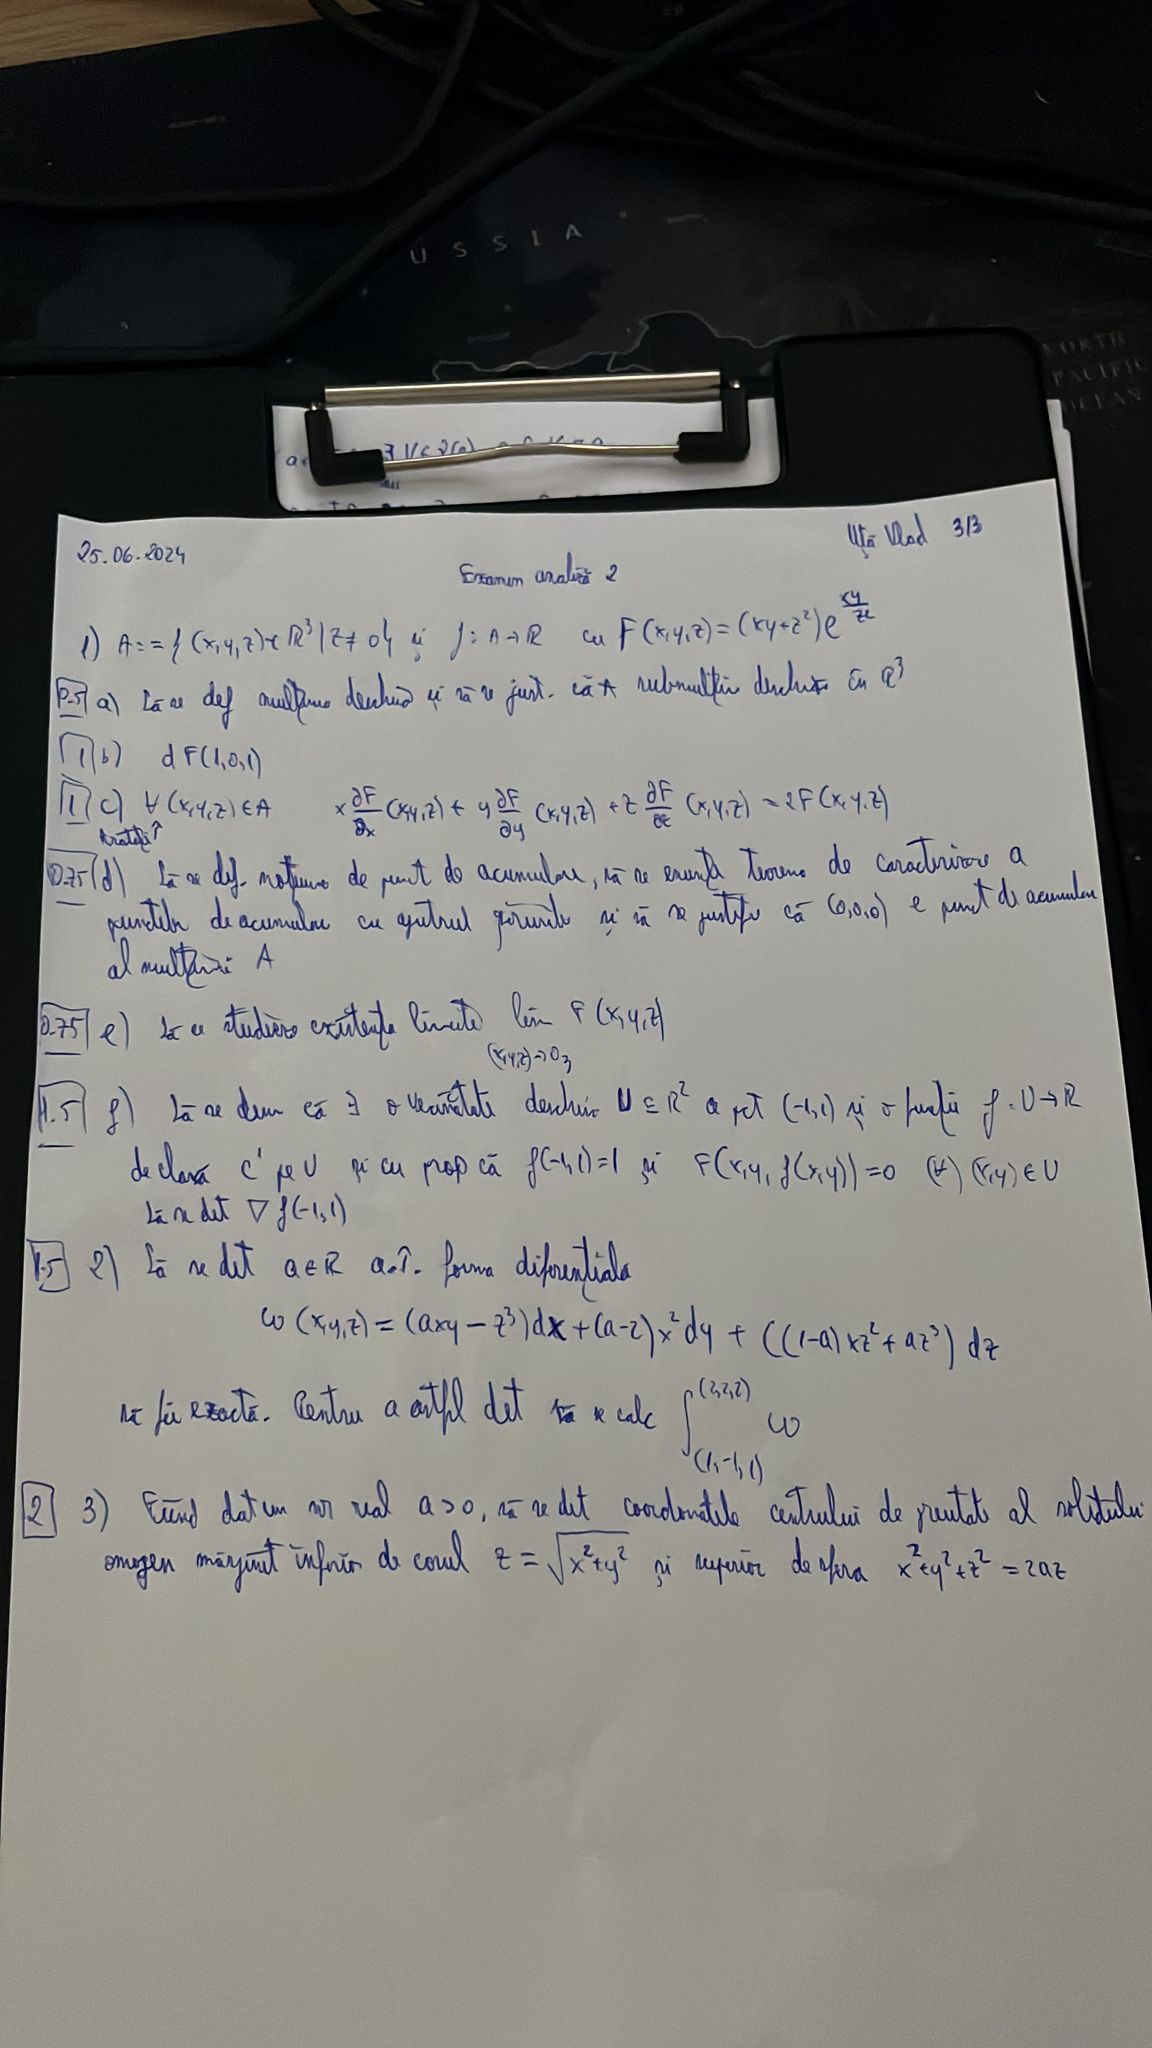 U S S I A
NORTH
PACIFIC
OCEAN
25.06.2024
Uță Vlad 3/3
Examen analiză 2
1) A:={(x,y,z)∈R³|z≠0} și f:A→R cu F(x,y,z)=(xy+z²)e^(xy/z²)
0.5 a) Să se def mulțime deschisă și să se just. că A submulțim deschisă în R³
1 b) dF(1,0,1)
1 c) ∀(x,y,z)∈A x ∂F/∂x (x,y,z) + y ∂F/∂y (x,y,z) + z ∂F/∂z (x,y,z) = 2F(x,y,z)
Arătați ↑
0.75 d) Să se def. noțiunea de punct de acumulare, să se enunțe teorema de caracterizare a
punctelor de acumulare cu ajutorul șirurilor și să se justifice că (0,0,0) e punct de acumulare
al mulțimii A
0.75 e) Să se studieze existența limitei lim F(x,y,z)
(x,y,z)→0₃
1.5 f) Să se dem că ∃ o vecinătate deschisă U⊆R² a pct (-1,1) și o funcție f:U→R
de clasă C¹ pe U și cu prop că f(-1,1)=1 și F(x,y,f(x,y))=0 (∀)(x,y)∈U
Să se det ∇f(-1,1)
1.5 2) Să se det a∈R a.î. forma diferențiala
ω(x,y,z)=(axy-z³)dx+(a-2)x²dy+((1-a)xz²+az³)dz
să fie exactă. Pentru a astfel det să se calc ∫_(1,-1,1)^(2,2,2) ω
2 3) Fiind dat un nr real a>0, să se det coordonatele centrului de greutate al solidului
omogen mărginit inferior de conul z=√(x²+y²) și superior de sfera x²+y²+z²=2az